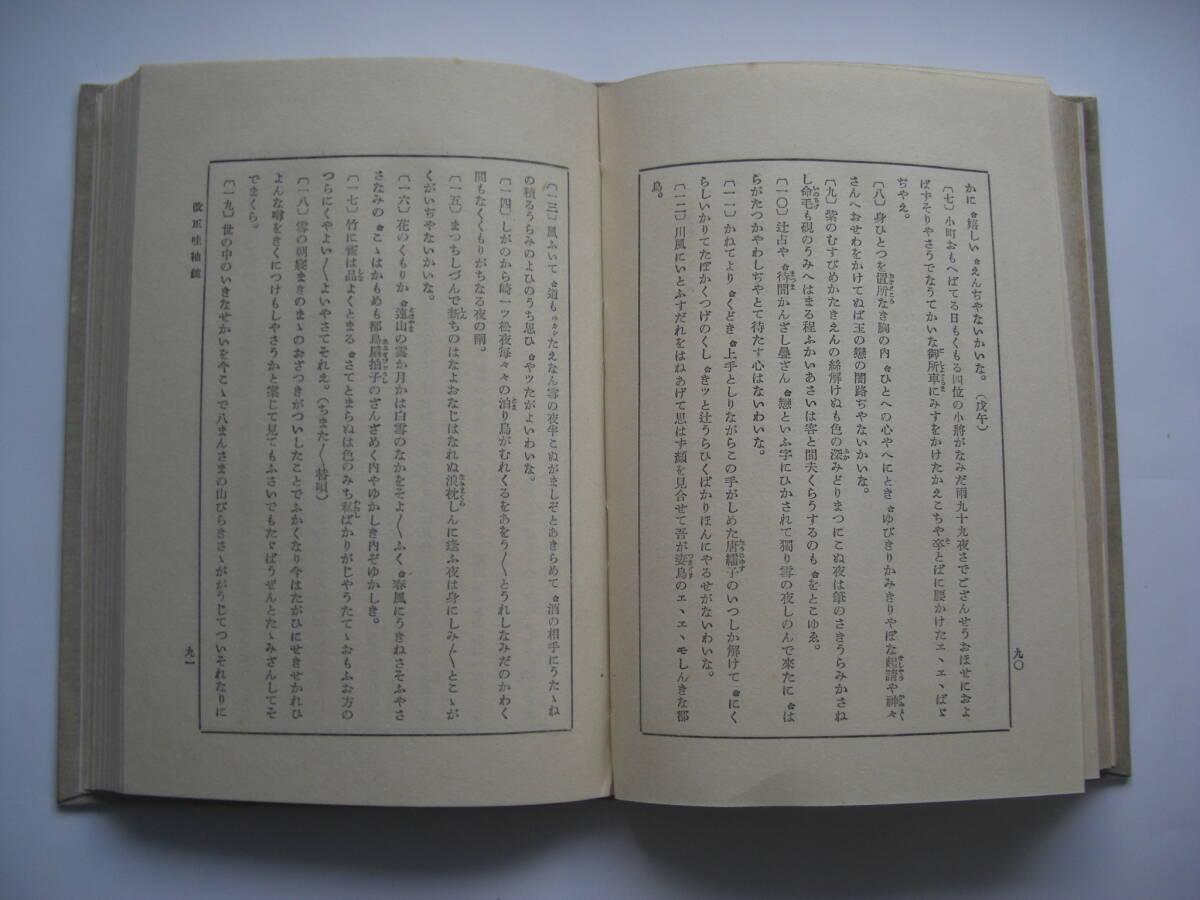 かに☆嬉しい☆えんぢやないかいな。（戊午）
〔七〕小町おもへばてる日もくもる四位の小將がなみだ雨九十九夜さでござんせうおほせにおよ
ばずそりやさうでなうてかいな御所車にみすをかけたかえこちや卒とばに腰かけたエヽエヽばゞ
ぢやえ。
〔八〕身ひとつを置所なき胸の内☆ひとへの心やへにとき☆ゆびきりかみきりやぼな起請や神々
さんへおせわをかけてぬば玉の戀の闇路ぢやないかいな。
〔九〕紫のむすびめかたきえんの絲解けぬも色の深みどりまつにこぬ夜は筆のさきうらみかさね
し命毛も硯のうみへはまる程ふかいあさいは客と間夫くらうするのも☆をとこゆゑ。
〔一〇〕辻占や☆待間かんざし疊ざん☆戀といふ字にひかされて獨り雪の夜しのんで來たに☆は
らがたつかやわしぢやとて待たす心はないわいな。
〔一一〕かねてより☆くどき☆上手としりながらこの手がしめた唐繻子のいつしか解けて☆にく
らしいかりてたぼかくつげのくし☆きツと辻うらひくばかりほんにやるせがないわいな。
〔一二〕川風にいとふすだれをはねあげて思はず顏を見合せて吾が妻鳥のエヽエヽモしんきな都
鳥。
九〇
〔一三〕風ふいて☆道もたえなん雪の夜半こぬがましぞとあきらめて☆酒の相手にうたゝね
の積るうらみのよひのうち思ひ☆やツたがよいわいな。
〔一四〕しがのから崎一ツ松夜毎々々の泊り鳥がむれくるをあをう〳〵とうれしなみだのかわく
間もなくくもりがちなる夜の雨。
〔一五〕まつちしづんで新ちのはなよおなじはなれぬ浪枕しんに逢ふ夜は身にしみ〴〵とこゝが
くがいぢやないかいな。
〔一六〕花のくもりか☆遠山の雲か月かは白雪のなかをそよ〳〵ふく☆春風にうきねさそふやさ
さなみの☆こゝはかもめも都鳥扇拍子のざんざめく内やゆかしき内ぞゆかしき。
〔一七〕竹に雀は品よくとまる☆さてとまらぬは色のみち私ばかりがじやうたてゝおもふお方の
つらにくやよい〳〵よいやさてそれえ。（ちまた〳〵替唄）
〔一八〕雪の朝寢まきのまゝのおざつきがついしたことでふかくなり今はたがひにせきせかれひ
よんな噂をきくにつけもしやさうかと案じて見てもふさいでもたゞばうぜんとたゝみざんしてそ
でまくら。
〔一九〕世の中のいきなせかいを今こゝで八まんさまの山びらきさゝががうじてついそれなりに
改正哇袖鏡
九一